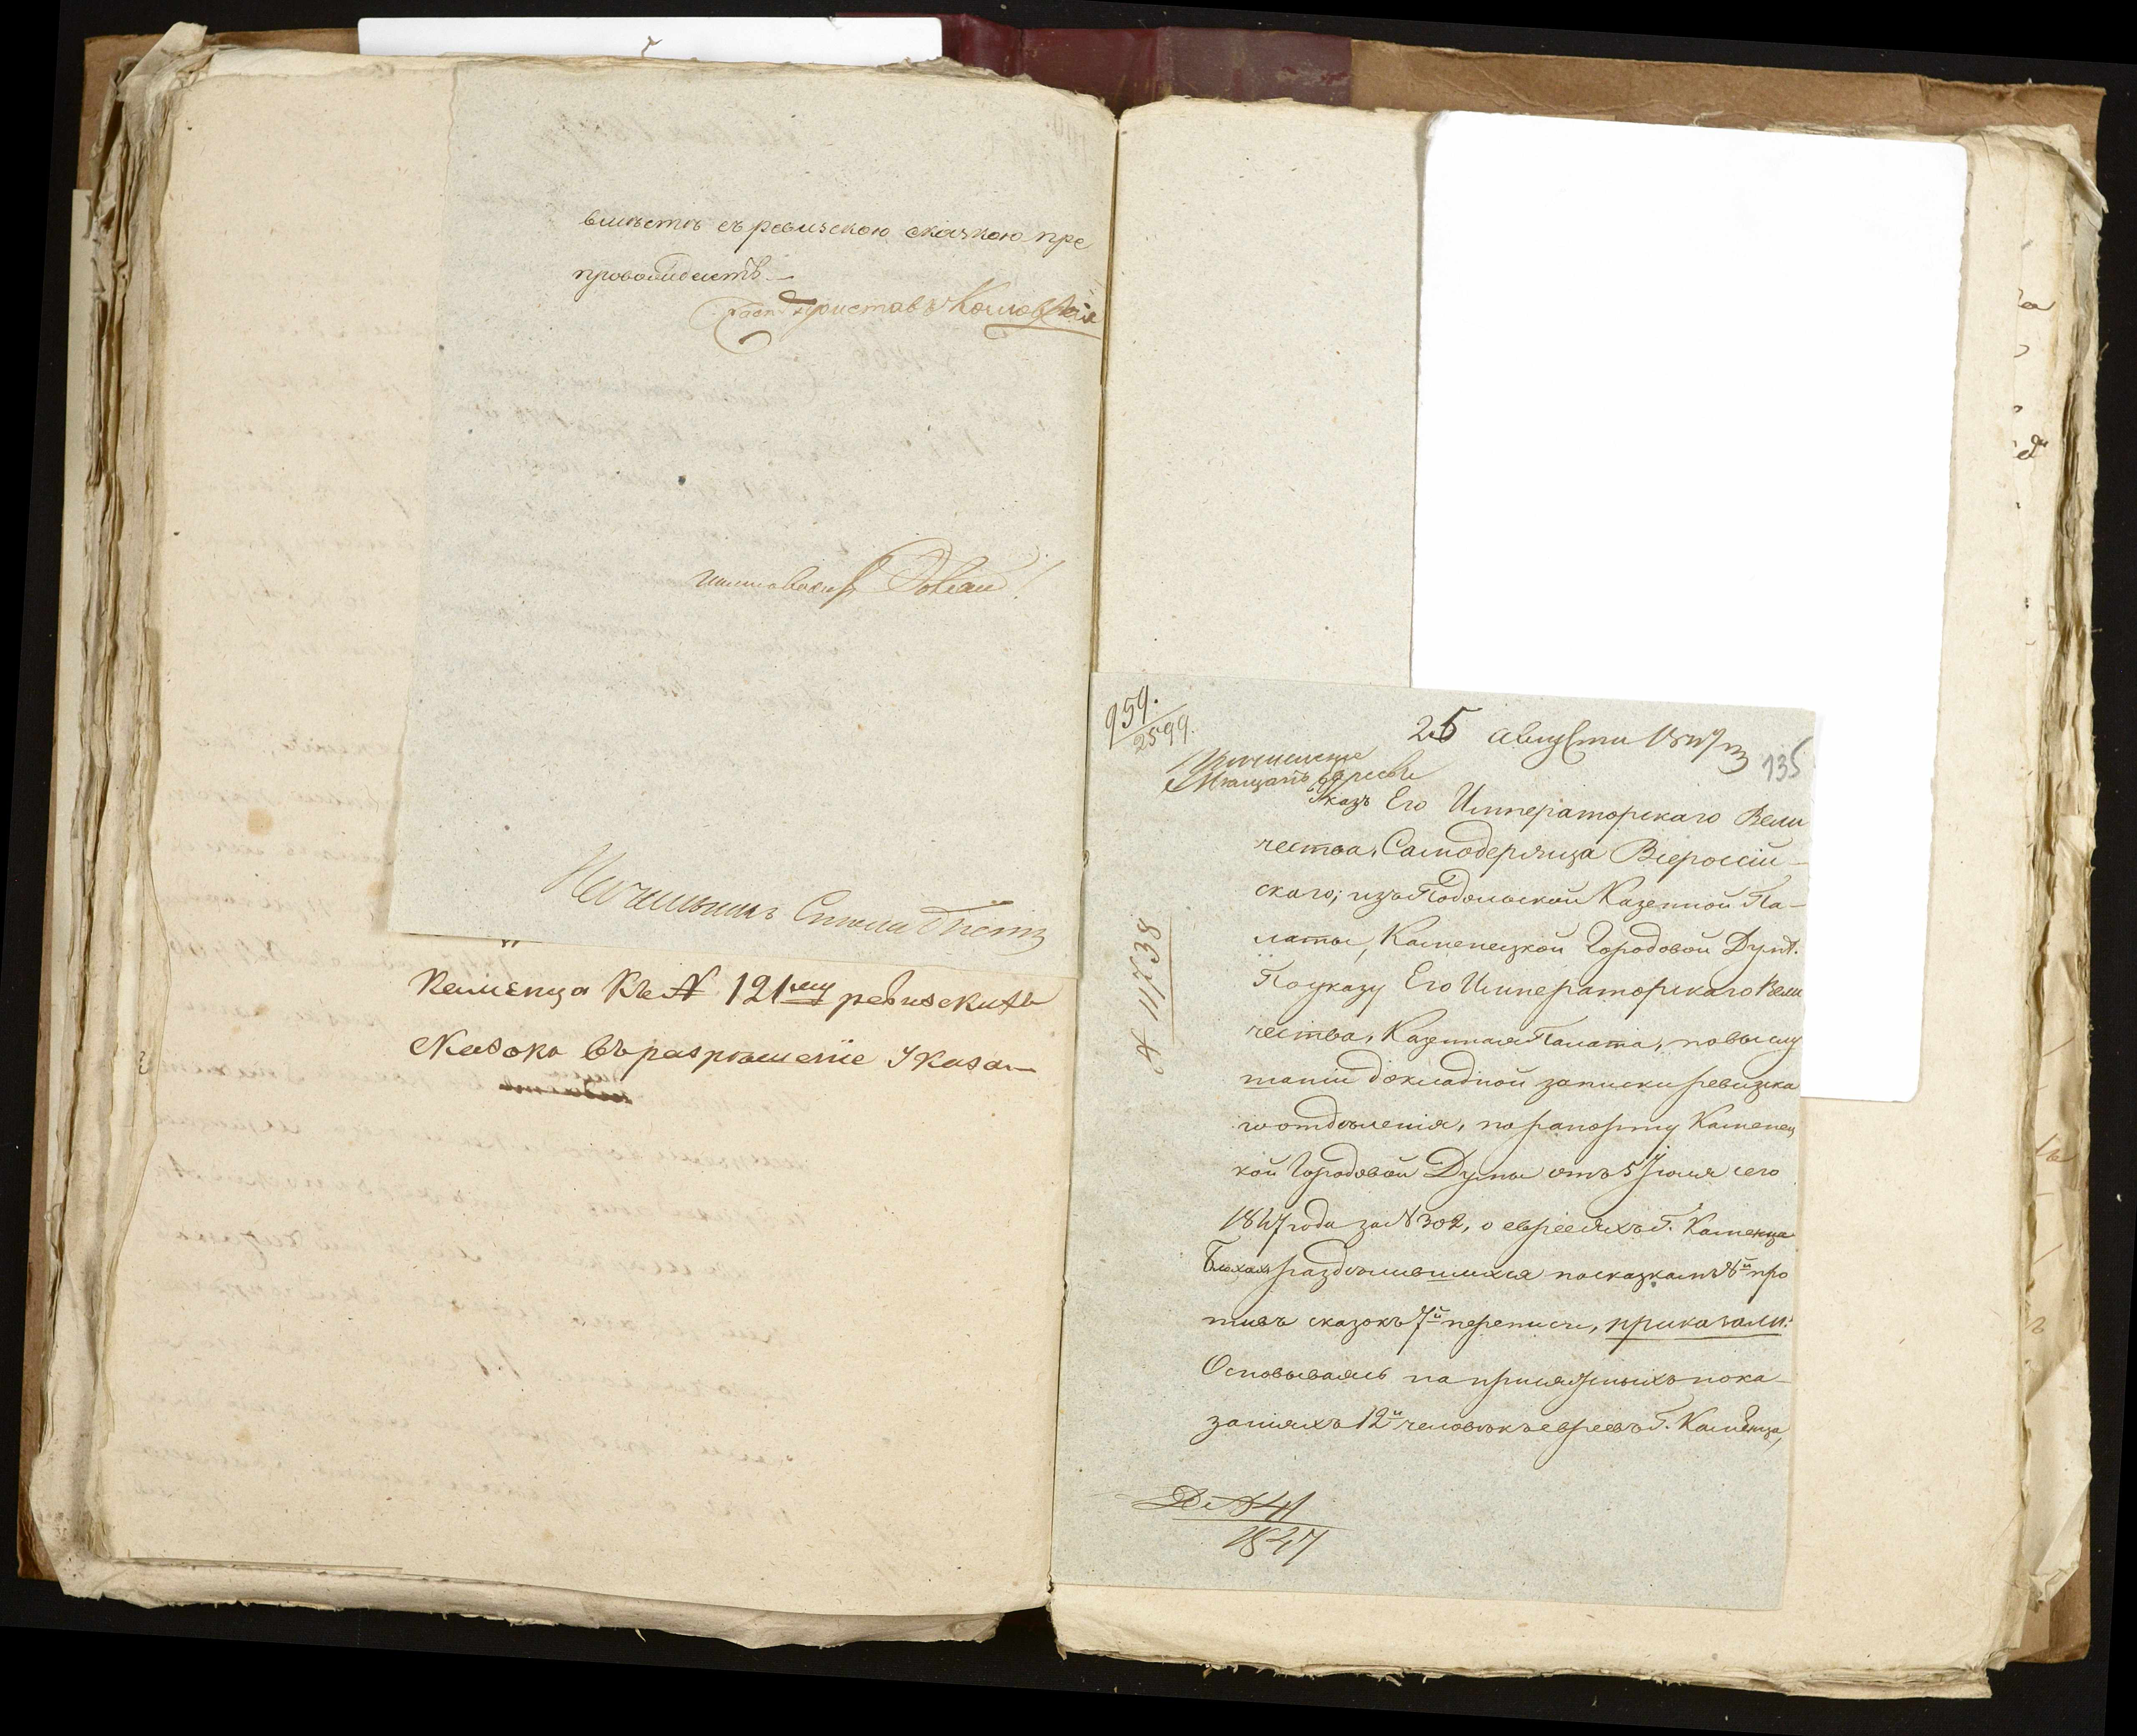 вмѣстѣ съ ревизскою сказкою пре
провождаетъ
приставъ
Каменца къ № 121му ревизскихъ
сказокъ въ разрѣшеніе Указа
959.
2599.
25 августа 1847
135
Мѣщанъ евреевъ
Указъ Его Императорскаго Вели
чества, Самодержца Всероссій-
скаго, изъ Подольской Казенной Па-
латы, Каменецкой Городовой Думѣ.
По указу Его Императорскаго Вели
чества, Казенная Палата, по выслу
шаніи докладной записки ревизска
го отдѣленія, по рапорту Каменец
кой Городовой Думы отъ 5 Іюля сего
1847 года за № 302, о евреяхъ г. Каменца
раздѣлившихся по сказкамъ 8й про
тивъ сказокъ 7й переписи, приказали:
Основываясь на присяжныхъ пока-
заніяхъ 12и человѣкъ евреевъ г. Каменца,
№ 11738
Де № 41
1847